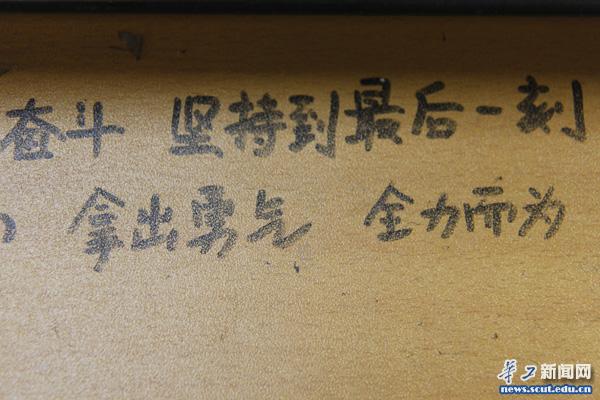 奋斗 坚持到最后一刻
拿出勇气 全力而为
华工新闻网
news.scut.edu.cn